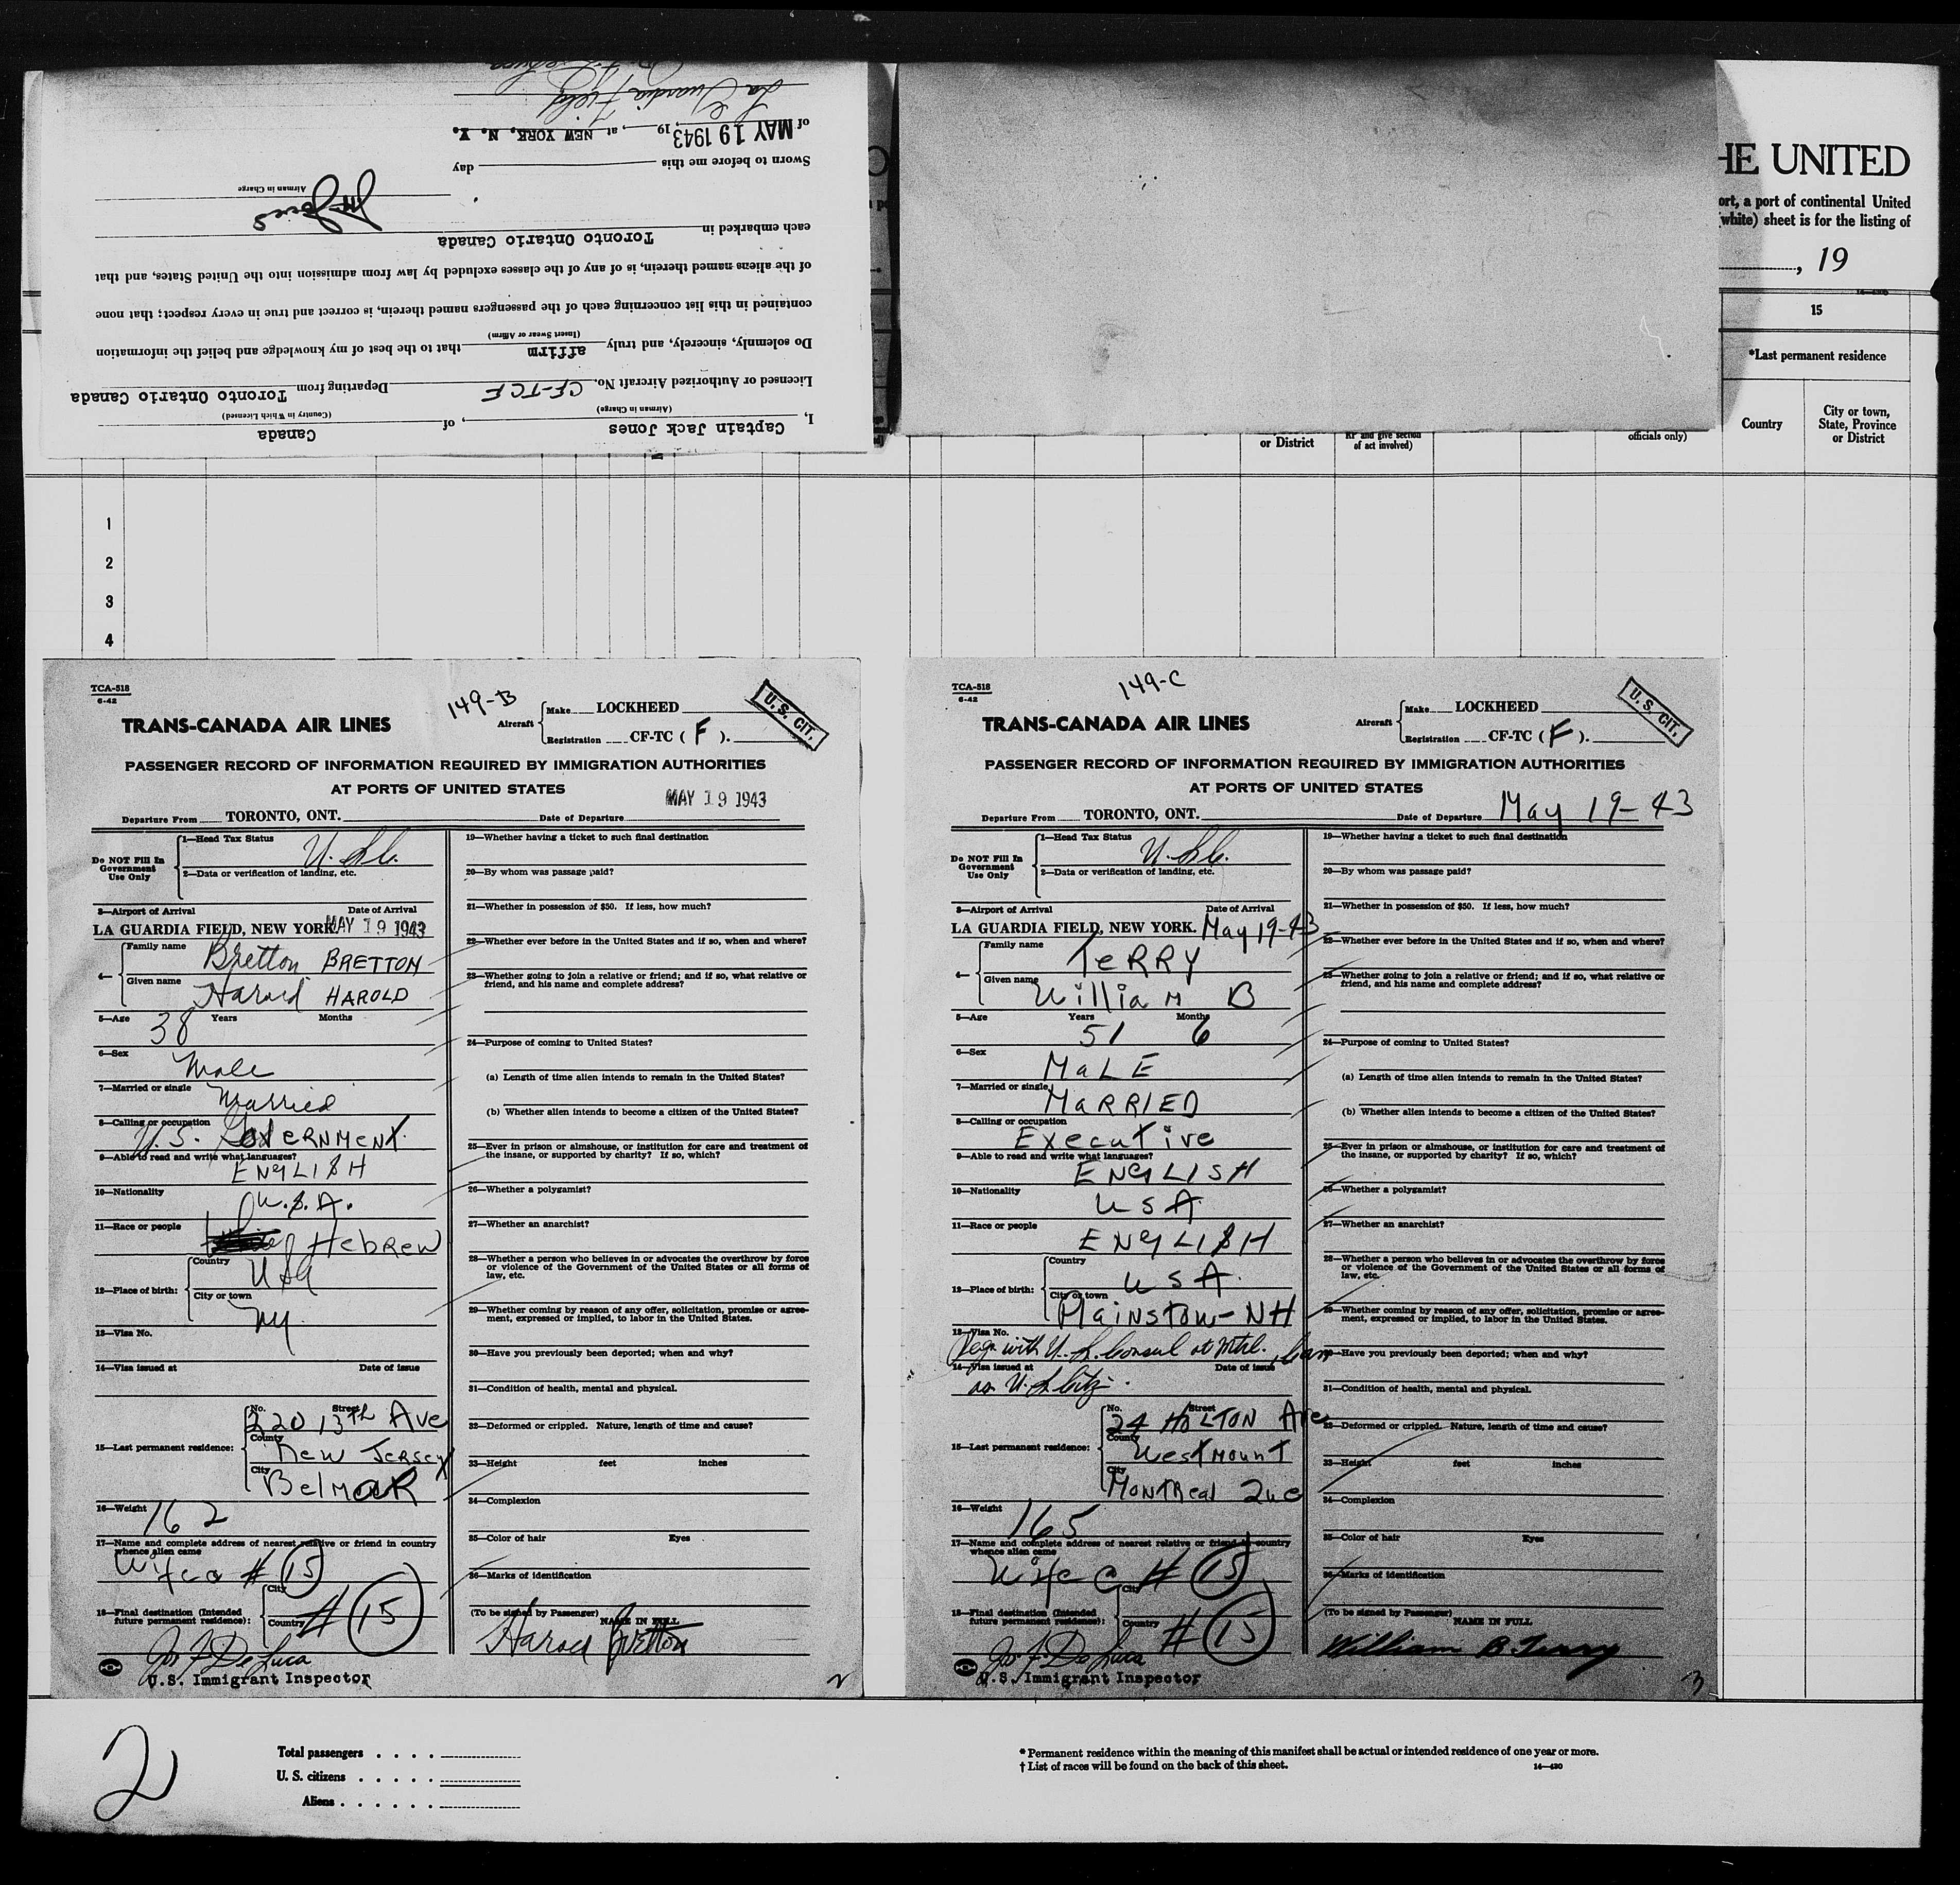 La Guardia Field
of MAY 19 1943, 19, at NEW YORK, N. Y.
Sworn to before me this day
Airman in Charge
each embarked in Toronto Ontario Canada
of the aliens named therein, is of any of the classes excluded by law from admission into the United States, and that
contained in this list concerning each of the passengers named therein, is correct and true in every respect; that none
(Insert Swear or Affirm)
Do solemnly, sincerely, and truly affirm that to the best of my knowledge and belief the information
Licensed or Authorized Aircraft No. CF-TCF Departing from Toronto Ontario Canada
(Airman in Charge) (Country in Which Licensed)
I, Captain Jack Jones, of Canada
HE UNITED
ort, a port of continental United
(white) sheet is for the listing of
, 19
15
*Last permanent residence
Country
City or town, State, Province or District
or District
RP and give section of act involved)
officials only)
1
2
3
4
TCA-518
6-42
149-B
TRANS-CANADA AIR LINES
Aircraft
Make LOCKHEED
Registration CF-TC (F).
U. S. CIT.
PASSENGER RECORD OF INFORMATION REQUIRED BY IMMIGRATION AUTHORITIES
AT PORTS OF UNITED STATES
MAY 19 1943
Departure From TORONTO, ONT. Date of Departure
Do NOT Fill In Government Use Only
1—Head Tax Status U.S.C.
2—Data or verification of landing, etc.
3—Airport of Arrival Date of Arrival
LA GUARDIA FIELD, NEW YORK. MAY 19 1943
4— Family name Bretton BRETTON
Given name Harold HAROLD
5—Age 38 Years Months
6—Sex Male
7—Married or single Married
8—Calling or occupation U.S. GOVERNMENT.
9—Able to read and write what languages? ENGLISH
10—Nationality U.S.A.
11—Race or people Hebrew
12—Place of birth: Country USA
City or town NY
13—Visa No.
14—Visa issued at Date of issue
15—Last permanent residence: No. Street 220 13th Ave
County New Jersey
City Belmar
16—Weight 162
17—Name and complete address of nearest relative or friend in country whence alien came
Wife @ # 15
18—Final destination (Intended future permanent residence): City Country # 15
Jos F De Luca
U.S. Immigrant Inspector
19—Whether having a ticket to such final destination
20—By whom was passage paid?
21—Whether in possession of $50. If less, how much?
22—Whether ever before in the United States and if so, when and where?
23—Whether going to join a relative or friend; and if so, what relative or friend, and his name and complete address?
24—Purpose of coming to United States?
(a) Length of time alien intends to remain in the United States?
(b) Whether alien intends to become a citizen of the United States?
25—Ever in prison or almshouse, or institution for care and treatment of the insane, or supported by charity? If so, which?
26—Whether a polygamist?
27—Whether an anarchist?
28—Whether a person who believes in or advocates the overthrow by force or violence of the Government of the United States or all forms of law, etc.
29—Whether coming by reason of any offer, solicitation, promise or agreement, expressed or implied, to labor in the United States.
30—Have you previously been deported; when and why?
31—Condition of health, mental and physical.
32—Deformed or crippled. Nature, length of time and cause?
33—Height feet inches
34—Complexion
35—Color of hair Eyes
36—Marks of identification
(To be signed by Passenger) NAME IN FULL
Harold Bretton
2
TCA-518
6-42
149-C
TRANS-CANADA AIR LINES
Aircraft
Make LOCKHEED
Registration CF-TC (F).
U. S. CIT.
PASSENGER RECORD OF INFORMATION REQUIRED BY IMMIGRATION AUTHORITIES
AT PORTS OF UNITED STATES
Departure From TORONTO, ONT. Date of Departure May 19-43
Do NOT Fill In Government Use Only
1—Head Tax Status U.S.C.
2—Data or verification of landing, etc.
3—Airport of Arrival Date of Arrival
LA GUARDIA FIELD, NEW YORK. May 19-43
4— Family name TERRY
Given name William B
5—Age Years 51 Months 6
6—Sex MALE
7—Married or single MARRIED
8—Calling or occupation Executive
9—Able to read and write what languages? ENGLISH
10—Nationality USA
11—Race or people ENGLISH
12—Place of birth: Country USA
City or town Plainstow-NH
13—Visa No. Regn with U.S. Consul at Mtl. Can
14—Visa issued at Date of issue
as U.S. Citz.
15—Last permanent residence: No. Street 24 HOLTON Ave
County Westmount
City Montreal Que
16—Weight 165
17—Name and complete address of nearest relative or friend in country whence alien came
Wife @ # 15
18—Final destination (Intended future permanent residence): City Country # 15
Jos. F. De Luca
U.S. Immigrant Inspector
19—Whether having a ticket to such final destination
20—By whom was passage paid?
21—Whether in possession of $50. If less, how much?
22—Whether ever before in the United States and if so, when and where?
23—Whether going to join a relative or friend; and if so, what relative or friend, and his name and complete address?
24—Purpose of coming to United States?
(a) Length of time alien intends to remain in the United States?
(b) Whether alien intends to become a citizen of the United States?
25—Ever in prison or almshouse, or institution for care and treatment of the insane, or supported by charity? If so, which?
26—Whether a polygamist?
27—Whether an anarchist?
28—Whether a person who believes in or advocates the overthrow by force or violence of the Government of the United States or all forms of law, etc.
29—Whether coming by reason of any offer, solicitation, promise or agreement, expressed or implied, to labor in the United States.
30—Have you previously been deported; when and why?
31—Condition of health, mental and physical.
32—Deformed or crippled. Nature, length of time and cause?
33—Height feet inches
34—Complexion
35—Color of hair Eyes
36—Marks of identification
(To be signed by Passenger) NAME IN FULL
William B. Terry
3
2
Total passengers
U. S. citizens
Aliens
* Permanent residence within the meaning of this manifest shall be actual or intended residence of one year or more.
† List of races will be found on the back of this sheet.
16—420